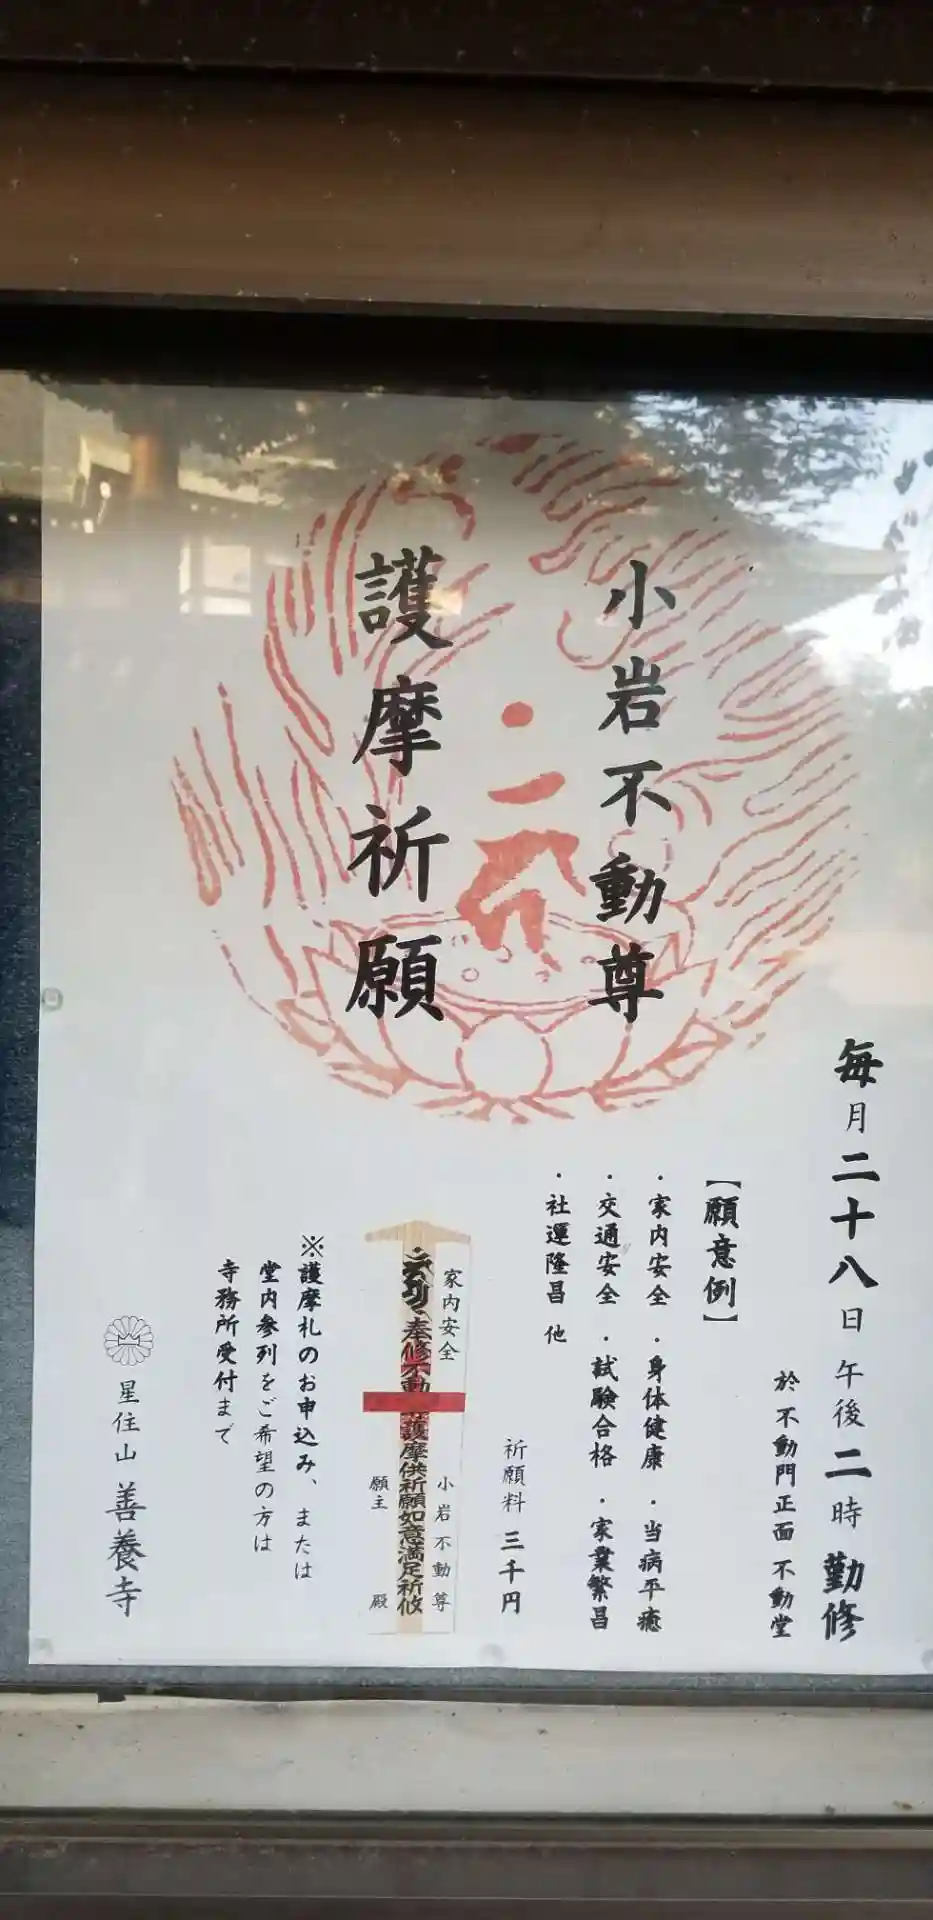 小岩不動尊
護摩祈願
毎月二十八日 午後二時 勤修
於 不動門正面 不動堂
【願意例】
・家内安全 ・身体健康 ・当病平癒
・交通安全 ・試験合格 ・家業繁昌
・社運隆昌 他
祈願料 三千円
家内安全
小岩不動尊
奉修不動尊護摩供祈願如意満足祈攸
願主 殿
※護摩札のお申込み、または
堂内参列をご希望の方は
寺務所受付まで
星住山 善養寺